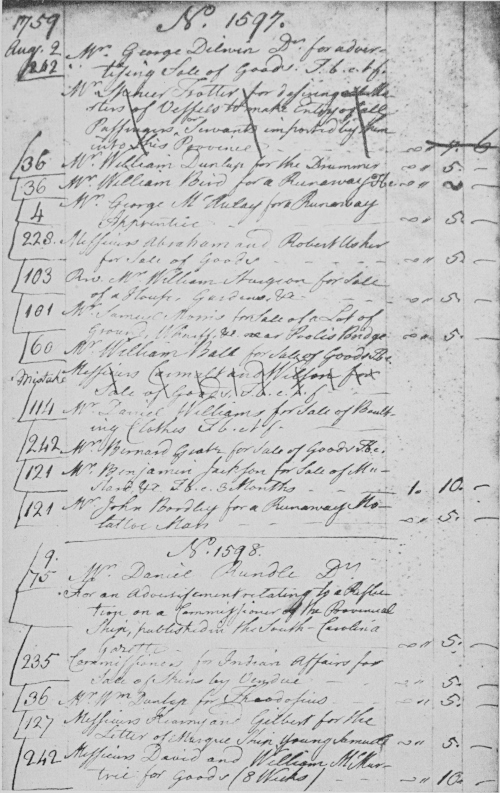 1759 No. 1597.
Aug. 2.
262 Mr. George Dilwin Dr. for adver-
tising Sale of Goods. T. b. c. t f.
Mr. Spencer Trotter for desiring Ma-
sters of Vessels to make Entry of all
Passengers, Servants imported by them
into this Province - - - 7. 6
36 Mr. William Dunlap for the Drummer - 5. -
36 Mr. William Bird for a Runaway T.b.c. - -
4 Mr. George McAulay for a Runaway
Apprentice - - - 5. -
228. Messieurs Abraham and Robert Usher
for Sale of Goods - - - 5. -
103 Rev. Mr. William Sturgeon for Sale
of a House, Gardens, &c. - - -
101 Mr. Samuel Morris for Sale of a Lot of
Ground, Wharff, &c. near Pool's Bridge 5. -
60 Mr. William Ball for Sale of Goods T.b.c.
Mistake Messieurs and Wilson for
Sale of Goods. T. b. c. t f.
114 Mr. Daniel Williams for Sale of Boult-
ing Clothes T. b. c. t f.
242 Mr. Bernard Gratz for Sale of Goods T.b.c.
121 Mr. Benjamin Jackson for Sale of Mu-
stard &c. T. b. c. 3 Months - - - 1. 10. -
121 Mr. John Bordley for a Runaway Mo-
lattoe Man - - - 5. -
9. No. 1598.
75 Mr. Daniel Rundle Dr.
For an Advertisement relating to a Reflec-
tion on a Commissioner of the Provincial
Ship, published in the South-Carolina
Gazette - - - 5. -
235 Commissioners for Indian Affairs for
Sale of Skins by Vendue - - - 5. -
36 Mr. Wm. Dunlap for Theodosius - 5. -
127 Messieurs Kearny and Gilbert for the
Letter of Marque Ship Young Samuel 5. -
242 Messieurs David and William McMur-
trie for Goods (8 Weeks) - - 10. -